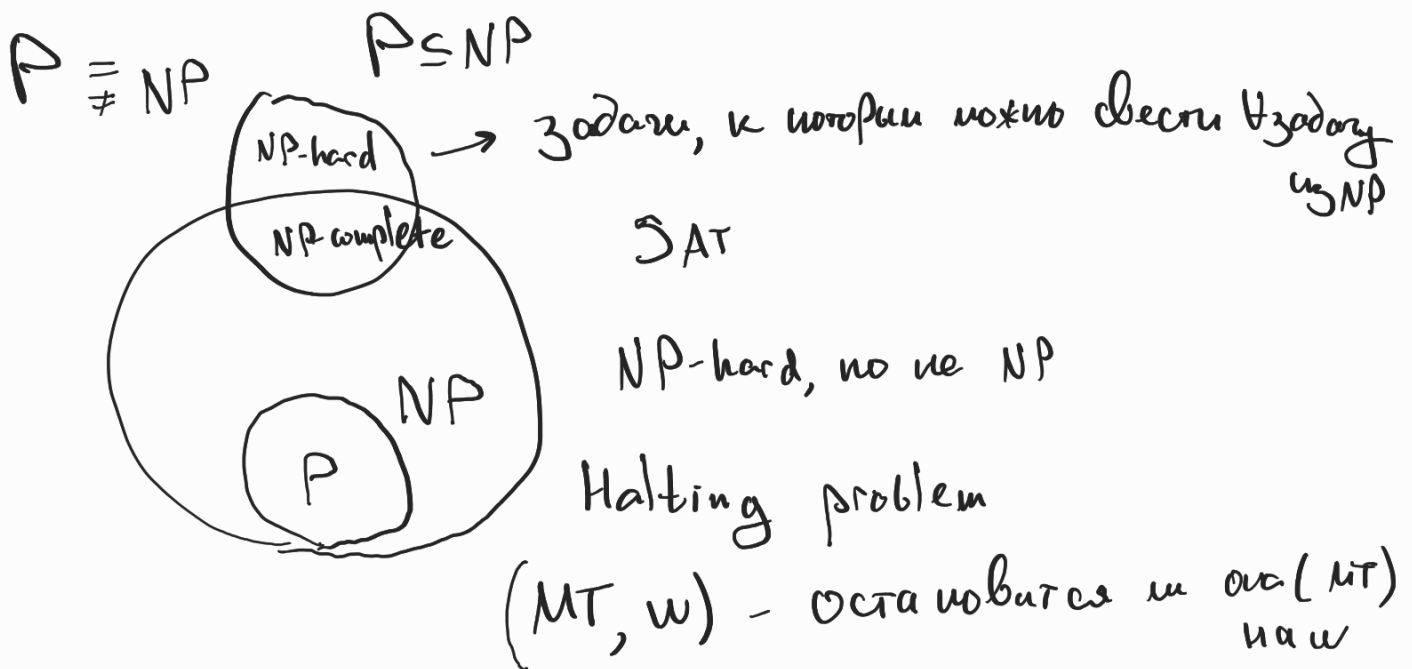 P = ≠ NP
P ⊆ NP
NP-hard → задачи, к которым можно свести ∀задачу
из NP
NP-complete
SAT
NP-hard, но не NP
NP
P
Halting problem
(MT, w) - остановится ли она (MT)
на w